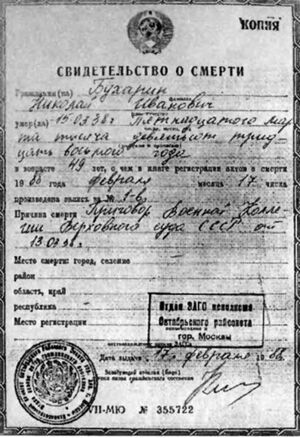 КОПИЯ
СВИДЕТЕЛЬСТВО О СМЕРТИ
Гражданин(ка) Бухарин
Николай Иванович
умер(ла) 15.03.38 г. Пятнадцатого мар-
та тысяча девятьсот трид-
цать восьмого года
в возрасте 49 лет, о чем в книге регистрации актов о смерти
19 88 года февраля месяца 17 числа
произведена запись за №
Причина смерти Приговор Военной Колле-
гии Верховного суда СССР от
13.03.38 г.
Место смерти: город, селение
район
область, край
республика
Место регистрации
Отдел ЗАГС исполкома
Октябрьского райсовета
гор. Москвы
Дата выдачи 17 февраля 19 88 г.
Заведующий отделом (бюро)
записи актов гражданского состояния
VII-МЮ № 355722